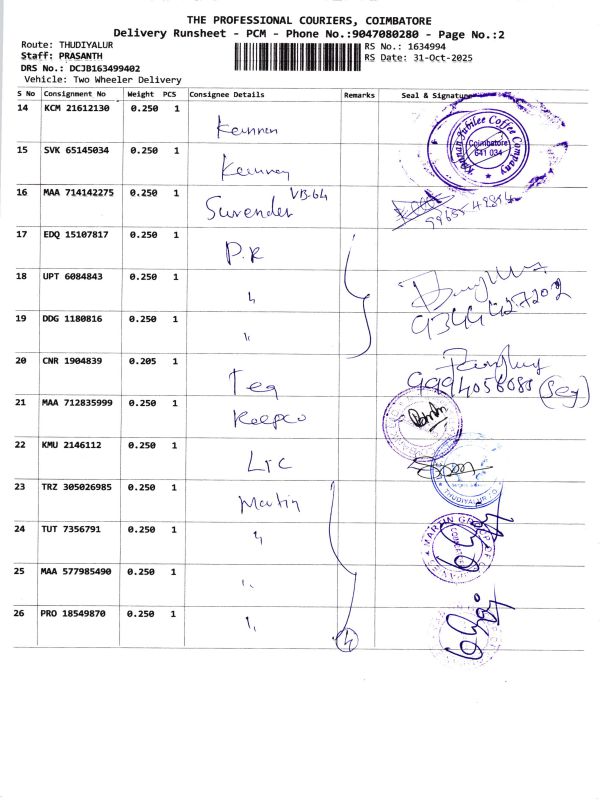 THE PROFESSIONAL COURIERS, COIMBATORE
Delivery Runsheet - PCM - Phone No.:9047080280 - Page No.:2
Route: THUDIYALUR
RS No.: 1634994
Staff: PRASANTH
RS Date: 31-Oct-2025
DRS No.: DCJB163499402
Vehicle: Two Wheeler Delivery
S No Consignment No Weight PCS Consignee Details Remarks Seal & Signature
14 KCM 21612130 0.250 1 Kannan
Kannan Jubilee Coffee Company
Coimbatore
641 034
15 SVK 65145034 0.250 1 Kannan
16 MAA 714142275 0.250 1 Surender VB-64
17 EDQ 15107817 0.250 1 P.K
18 UPT 6084843 0.250 1 "
9344427202
19 DDG 1180816 0.250 1 "
20 CNR 1904839 0.205 1 Tea
21 MAA 712835999 0.250 1
22 KMU 2146112 0.250 1 LIC
THUDIYALUR
23 TRZ 305026985 0.250 1 Martin
24 TUT 7356791 0.250 1 "
MARTIN GROUP OF
25 MAA 577985490 0.250 1 "
26 PRO 18549870 0.250 1 "
4